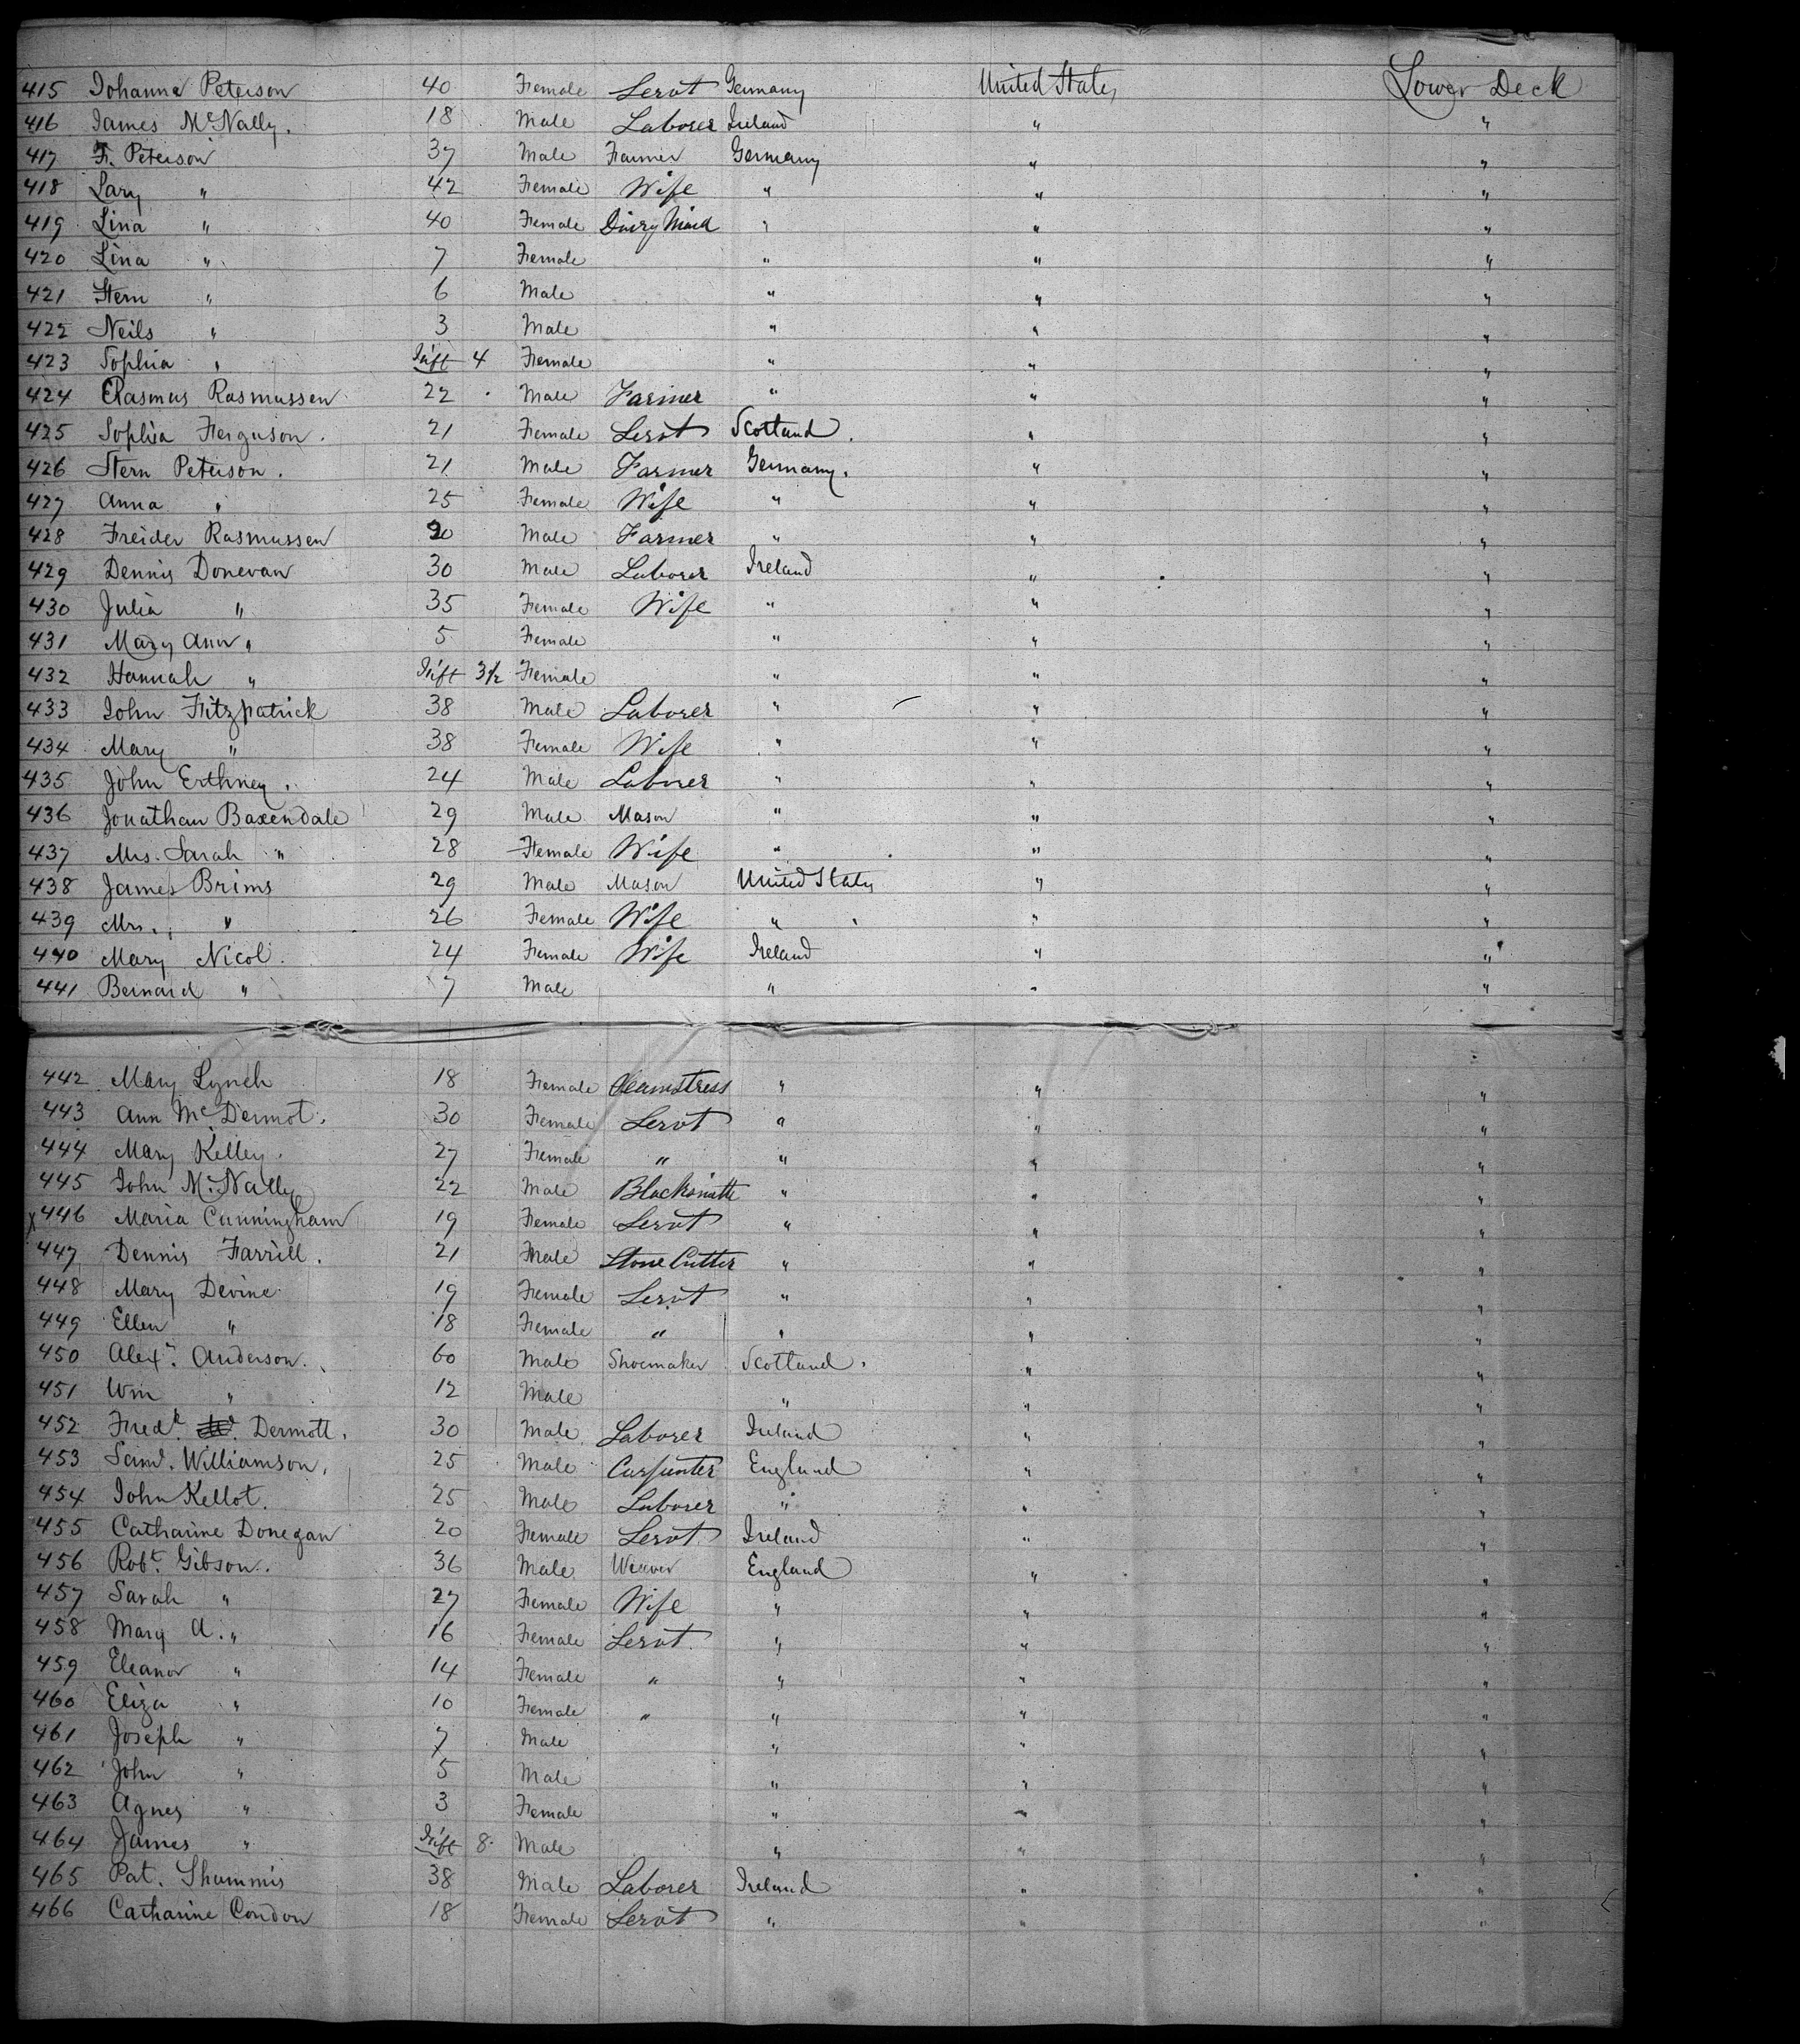 415 Johanna Peterson 40 Female Servt Germany United States Lower Deck
416 James McNally. 18 Male Laborer Ireland " "
417 F. Peterson 37 Male Farmer Germany " "
418 Lary " 42 Female Wife " " "
419 Lina " 40 Female Dairy Maid " " "
420 Lina " 7 Female " " "
421 Stern " 6 Male " " "
422 Neils " 3 Male " " "
423 Sophia " Inft 4 Female " " "
424 Rasmus Rasmussen 22 Male Farmer " " "
425 Sophia Ferguson. 21 Female Servt Scotland. " "
426 Stern Peterson. 21 Male Farmer Germany. " "
427 Anna " 25 Female Wife " " "
428 Freider Rasmussen 20 Male Farmer " " "
429 Dennis Donevan 30 Male Laborer Ireland " "
430 Julia " 35 Female Wife " " "
431 Mary Ann " 5 Female " " "
432 Hannah " Inft 3½ Female " " "
433 John Fitzpatrick 38 Male Laborer " " "
434 Mary " 38 Female Wife " " "
435 John Erthney. 24 Male Laborer " " "
436 Jonathan Baxendale 29 Male Mason " " "
437 Mrs. Sarah " 28 Female Wife " " "
438 James Brims 29 Male Mason United States " "
439 Mrs. " 26 Female Wife " " "
440 Mary Nicol. 24 Female Wife Ireland " "
441 Bernard " 7 Male " " "
442 Mary Lynch 18 Female Seamstress " " "
443 Ann McDermot. 30 Female Servt " " "
444 Mary Kelley. 27 Female " " " "
445 John McNally 22 Male Blacksmith " " "
x 446 Maria Cunningham 19 Female Servt " " "
447 Dennis Farrill. 21 Male Stone Cutter " " "
448 Mary Devine 19 Female Servt " " "
449 Ellen " 18 Female " " " "
450 Alexr. Anderson. 60 Male Shoemaker Scotland. " "
451 Wm " 12 Male " " "
452 Fredk. Dermott. 30 Male Laborer Ireland " "
453 Saml. Williamson. 25 Male Carpenter England " "
454 John Kellot. 25 Male Laborer " " "
455 Catharine Donegan 20 Female Servt Ireland " "
456 Robt. Gibson. 36 Male Weaver England " "
457 Sarah " 27 Female Wife " " "
458 Mary A. " 16 Female Servt. " " "
459 Eleanor " 14 Female " " " "
460 Eliza " 10 Female " " " "
461 Joseph " 7 Male " " "
462 John " 5 Male " " "
463 Agnes " 3 Female " " "
464 James " Inft 8 Male " " "
465 Pat. Shummis 38 Male Laborer Ireland " "
466 Catharine Condon 18 Female Servt " " "